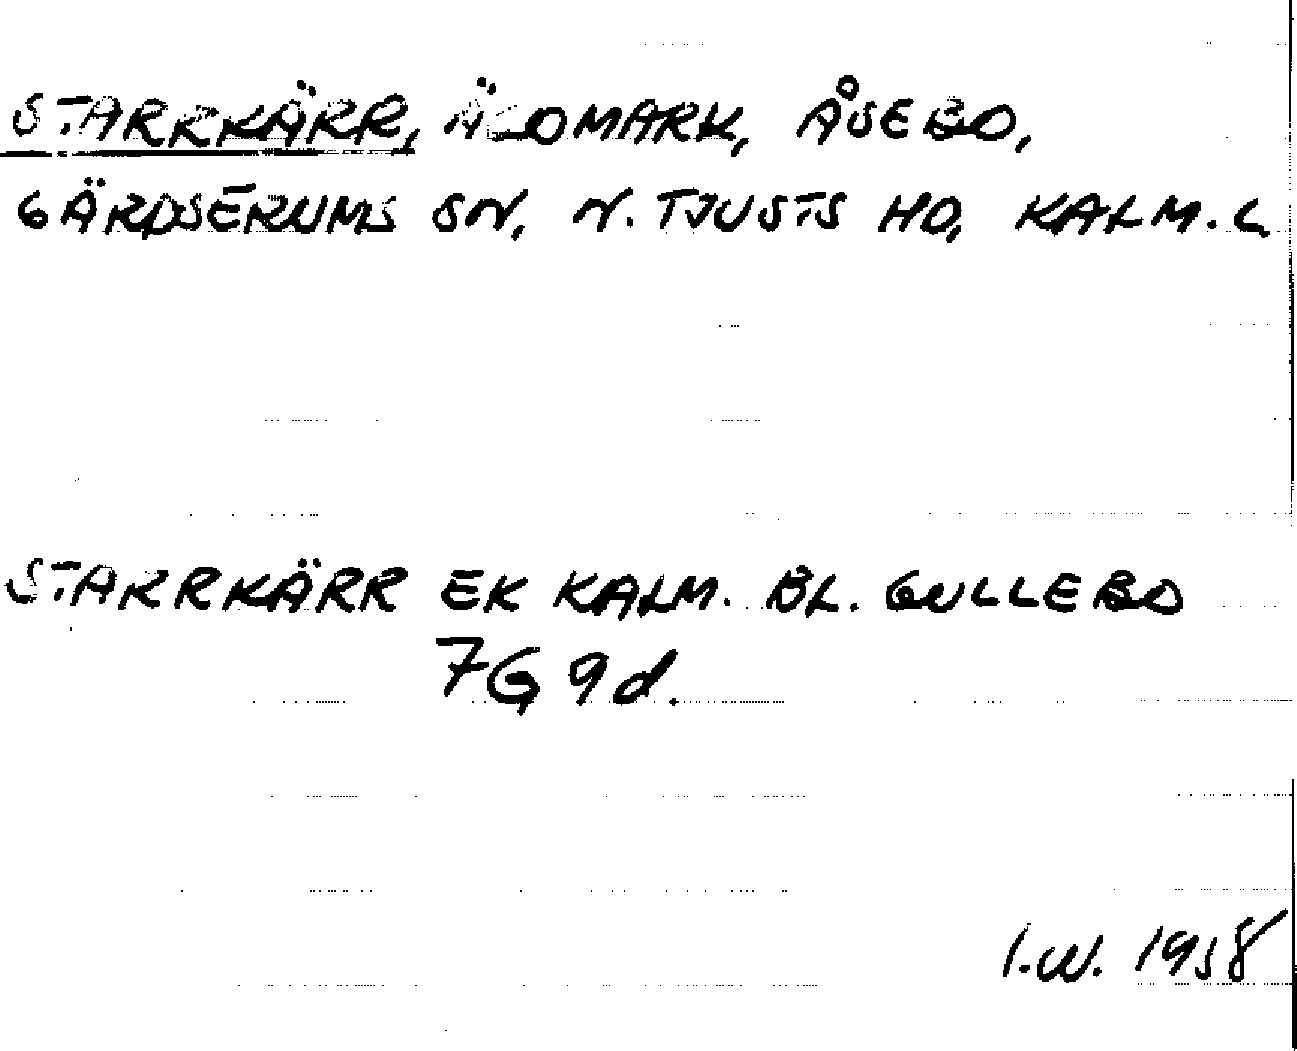 STARRKÄRR, ÄLDMARK, ÅSEBO,
GÄRDSERUMS SN, N. TJUSTS HD, KALM. L
STARRKÄRR EK KALM. BL. GULLEBO
7G 9d.
I.W. 1958